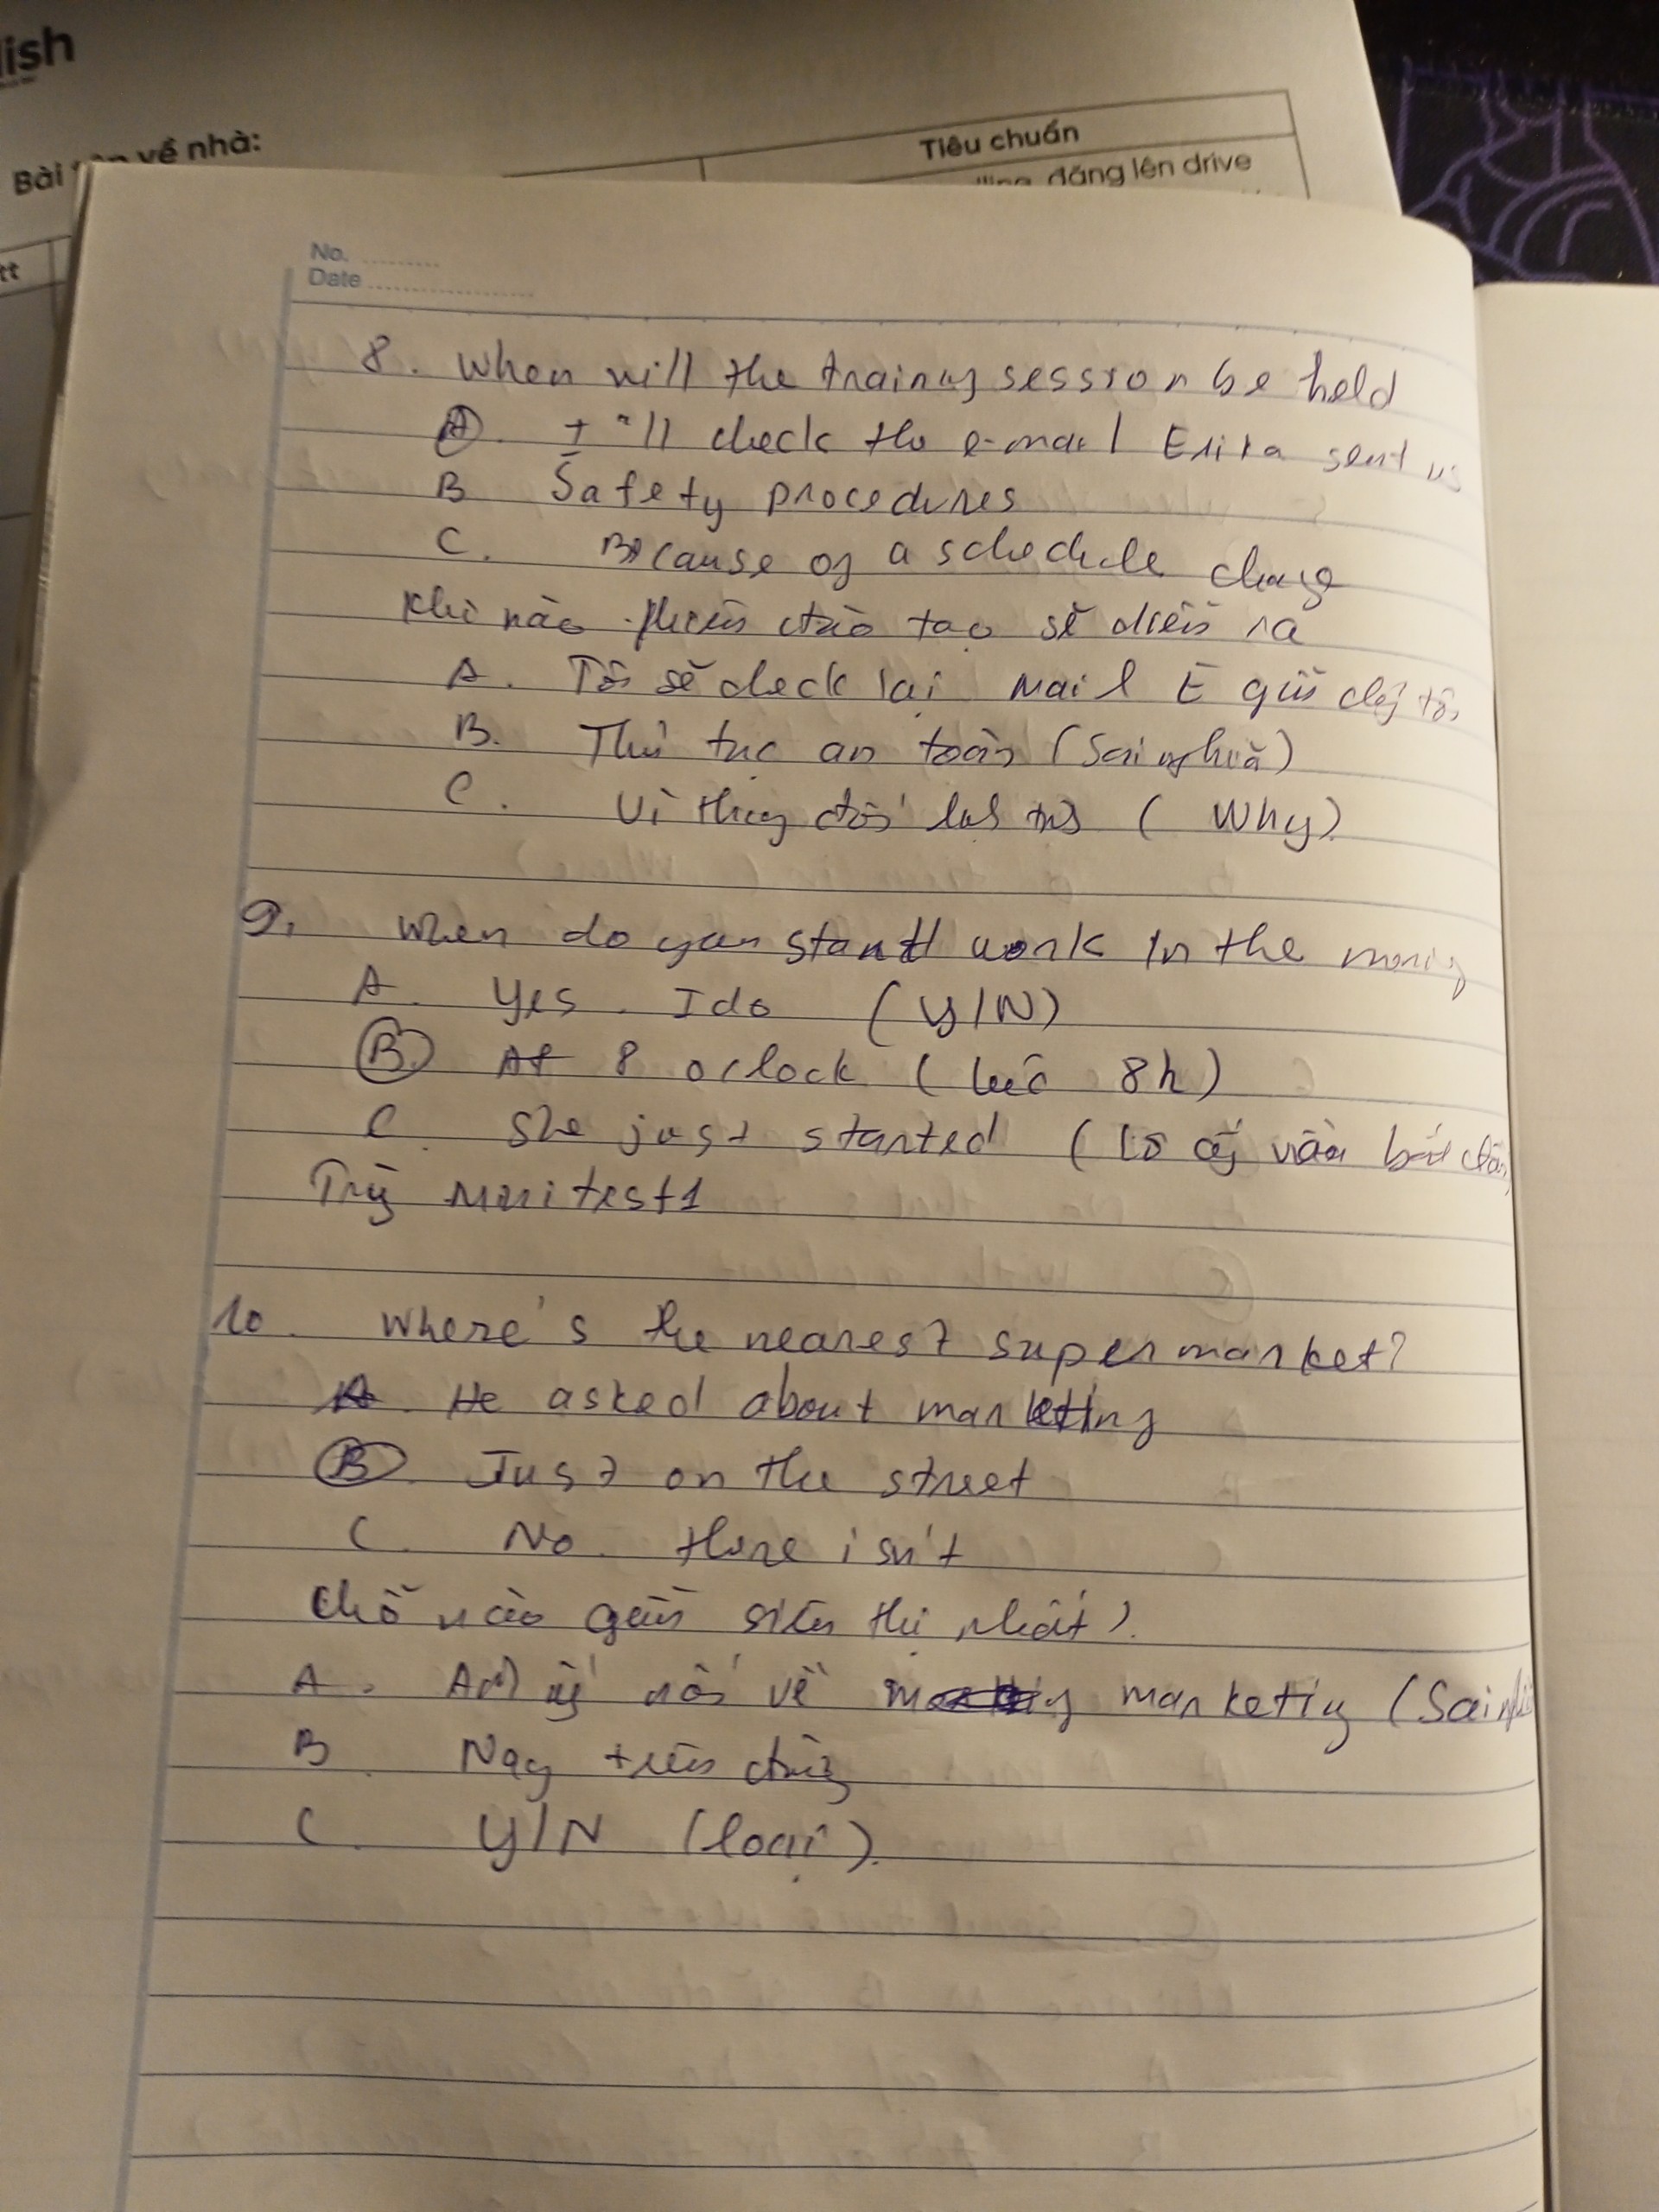 lish
Bài về nhà:
Tiêu chuẩn
đăng lên drive
tt
No.
Date
8. When will the training session be held
A. I'll check the e-mail Erika sent us
B Safety procedures
C. Because of a schedule change
Khi nào phiên đào tạo sẽ diễn ra
A. Tôi sẽ check lại mail E gửi
B. Thủ tục an toàn (Sai nghĩa)
C. Vì thay đổi (Why)
9. When do you start work in the morning
A. Yes. I do (Y/N)
B. At 8 o'clock (lúc 8h)
C. She just started (Cô ấy vừa bắt đầu)
minitest1
10. Where's the nearest supermarket?
A. He asked about marketing
B. Just on the street
C. No. there isn't
Chỗ nào gần siêu thị nhất?
A. Anh ấy nói về marketing (Sai
B. Ngay trên đường
C. Y/N (loại).